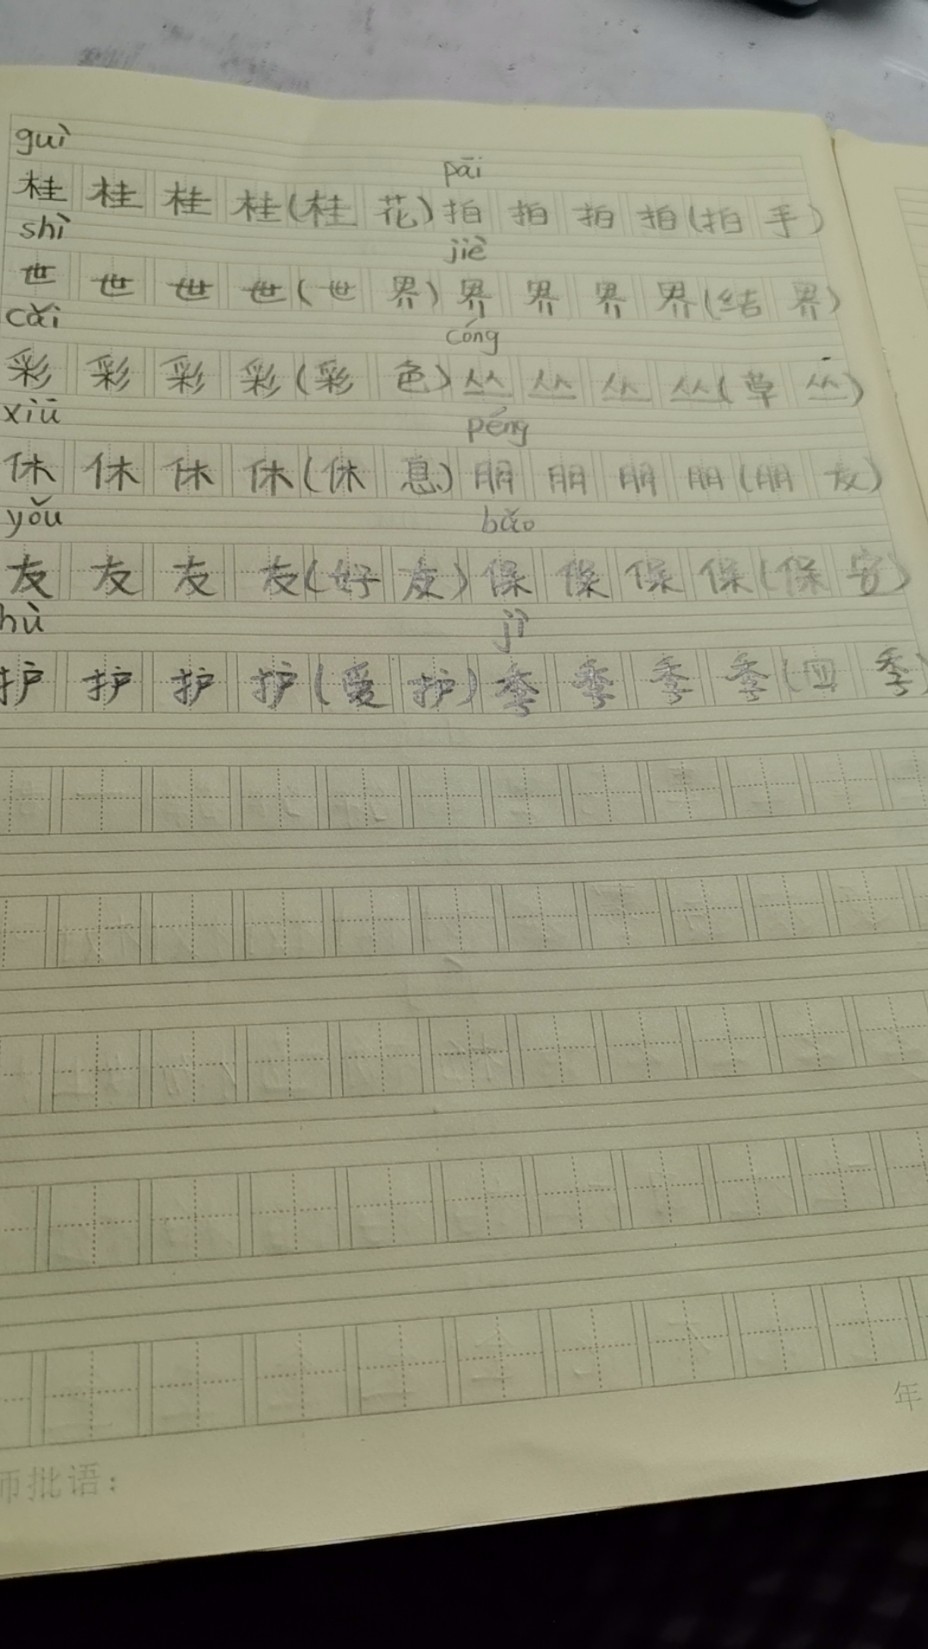 guì pāi
桂 桂 桂 桂(桂 花)拍 拍 拍 拍(拍 手)
shì jiè
世 世 世 世(世 界)界 界 界 界(结 界)
cǎi cóng
彩 彩 彩 彩(彩 色)丛 丛 丛 丛(草 丛)
xiū péng
休 休 休 休(休 息)朋 朋 朋 朋(朋 友)
yǒu bǎo
友 友 友 友(好 友)保 保 保 保(保 安)
hù jì
护 护 护 护(爱 护)季 季 季 季(四 季)
年
师批语: